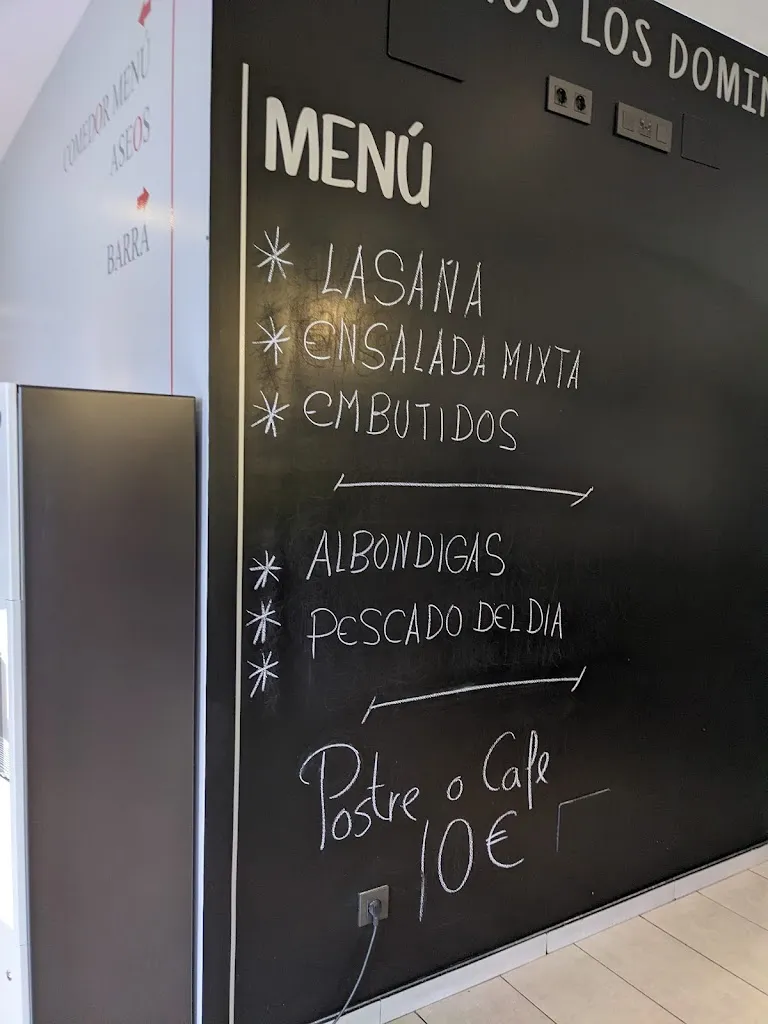 LOS DOMIN
COMEDOR MENÚ
ASEOS
BARRA
MENÚ
* LASAÑA
* ENSALADA MIXTA
* EMBUTIDOS
* ALBONDIGAS
* PESCADO DEL DIA
*
Postre o Cafe
10€